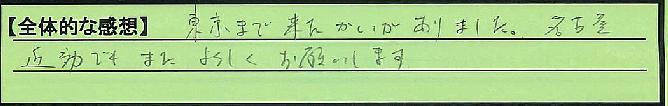 【全体的な感想】 東京まで来たかいがありました。名古屋
近効でもまたよろしくお願いします